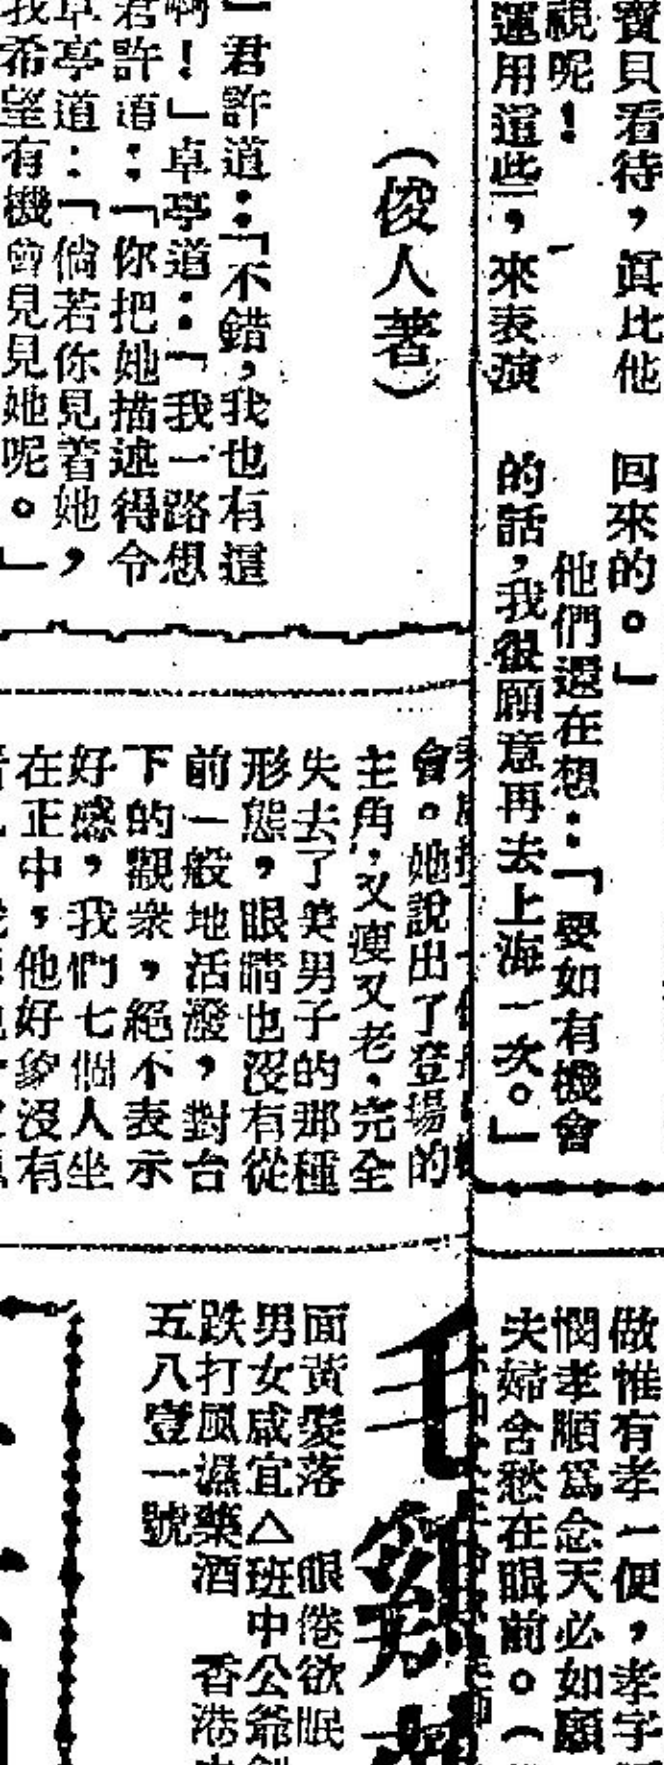 寶貝看待，眞比他
視呢！
運用這些，來表演
回來的。」
他們還在想：「要如有機會
的話，我很願意再去上海一次。」
（俊人著）
」君許道：「不錯，我也有這
啊！」卓亭道：「我一路想
君許道：「你把她描述得令
卓亭道：「倘若你見着她，
我希望有機會見見她呢。」
會。她說出了登場的
主角，又瘦又老，完全
失去了美男子的那種
形態，眼睛也沒有從
前一般地活潑，對台
下的觀衆，絕不表示
好感，我們七個人坐
在正中，他好參沒有
做惟有孝一便，孝字
憫孝順爲念天必如願
夫婦含愁在眼前。（
毛
面黃髮落　眼倦欲眠
男女咸宜△班中公爺
跌打風濕藥酒　香港
五八壹一號